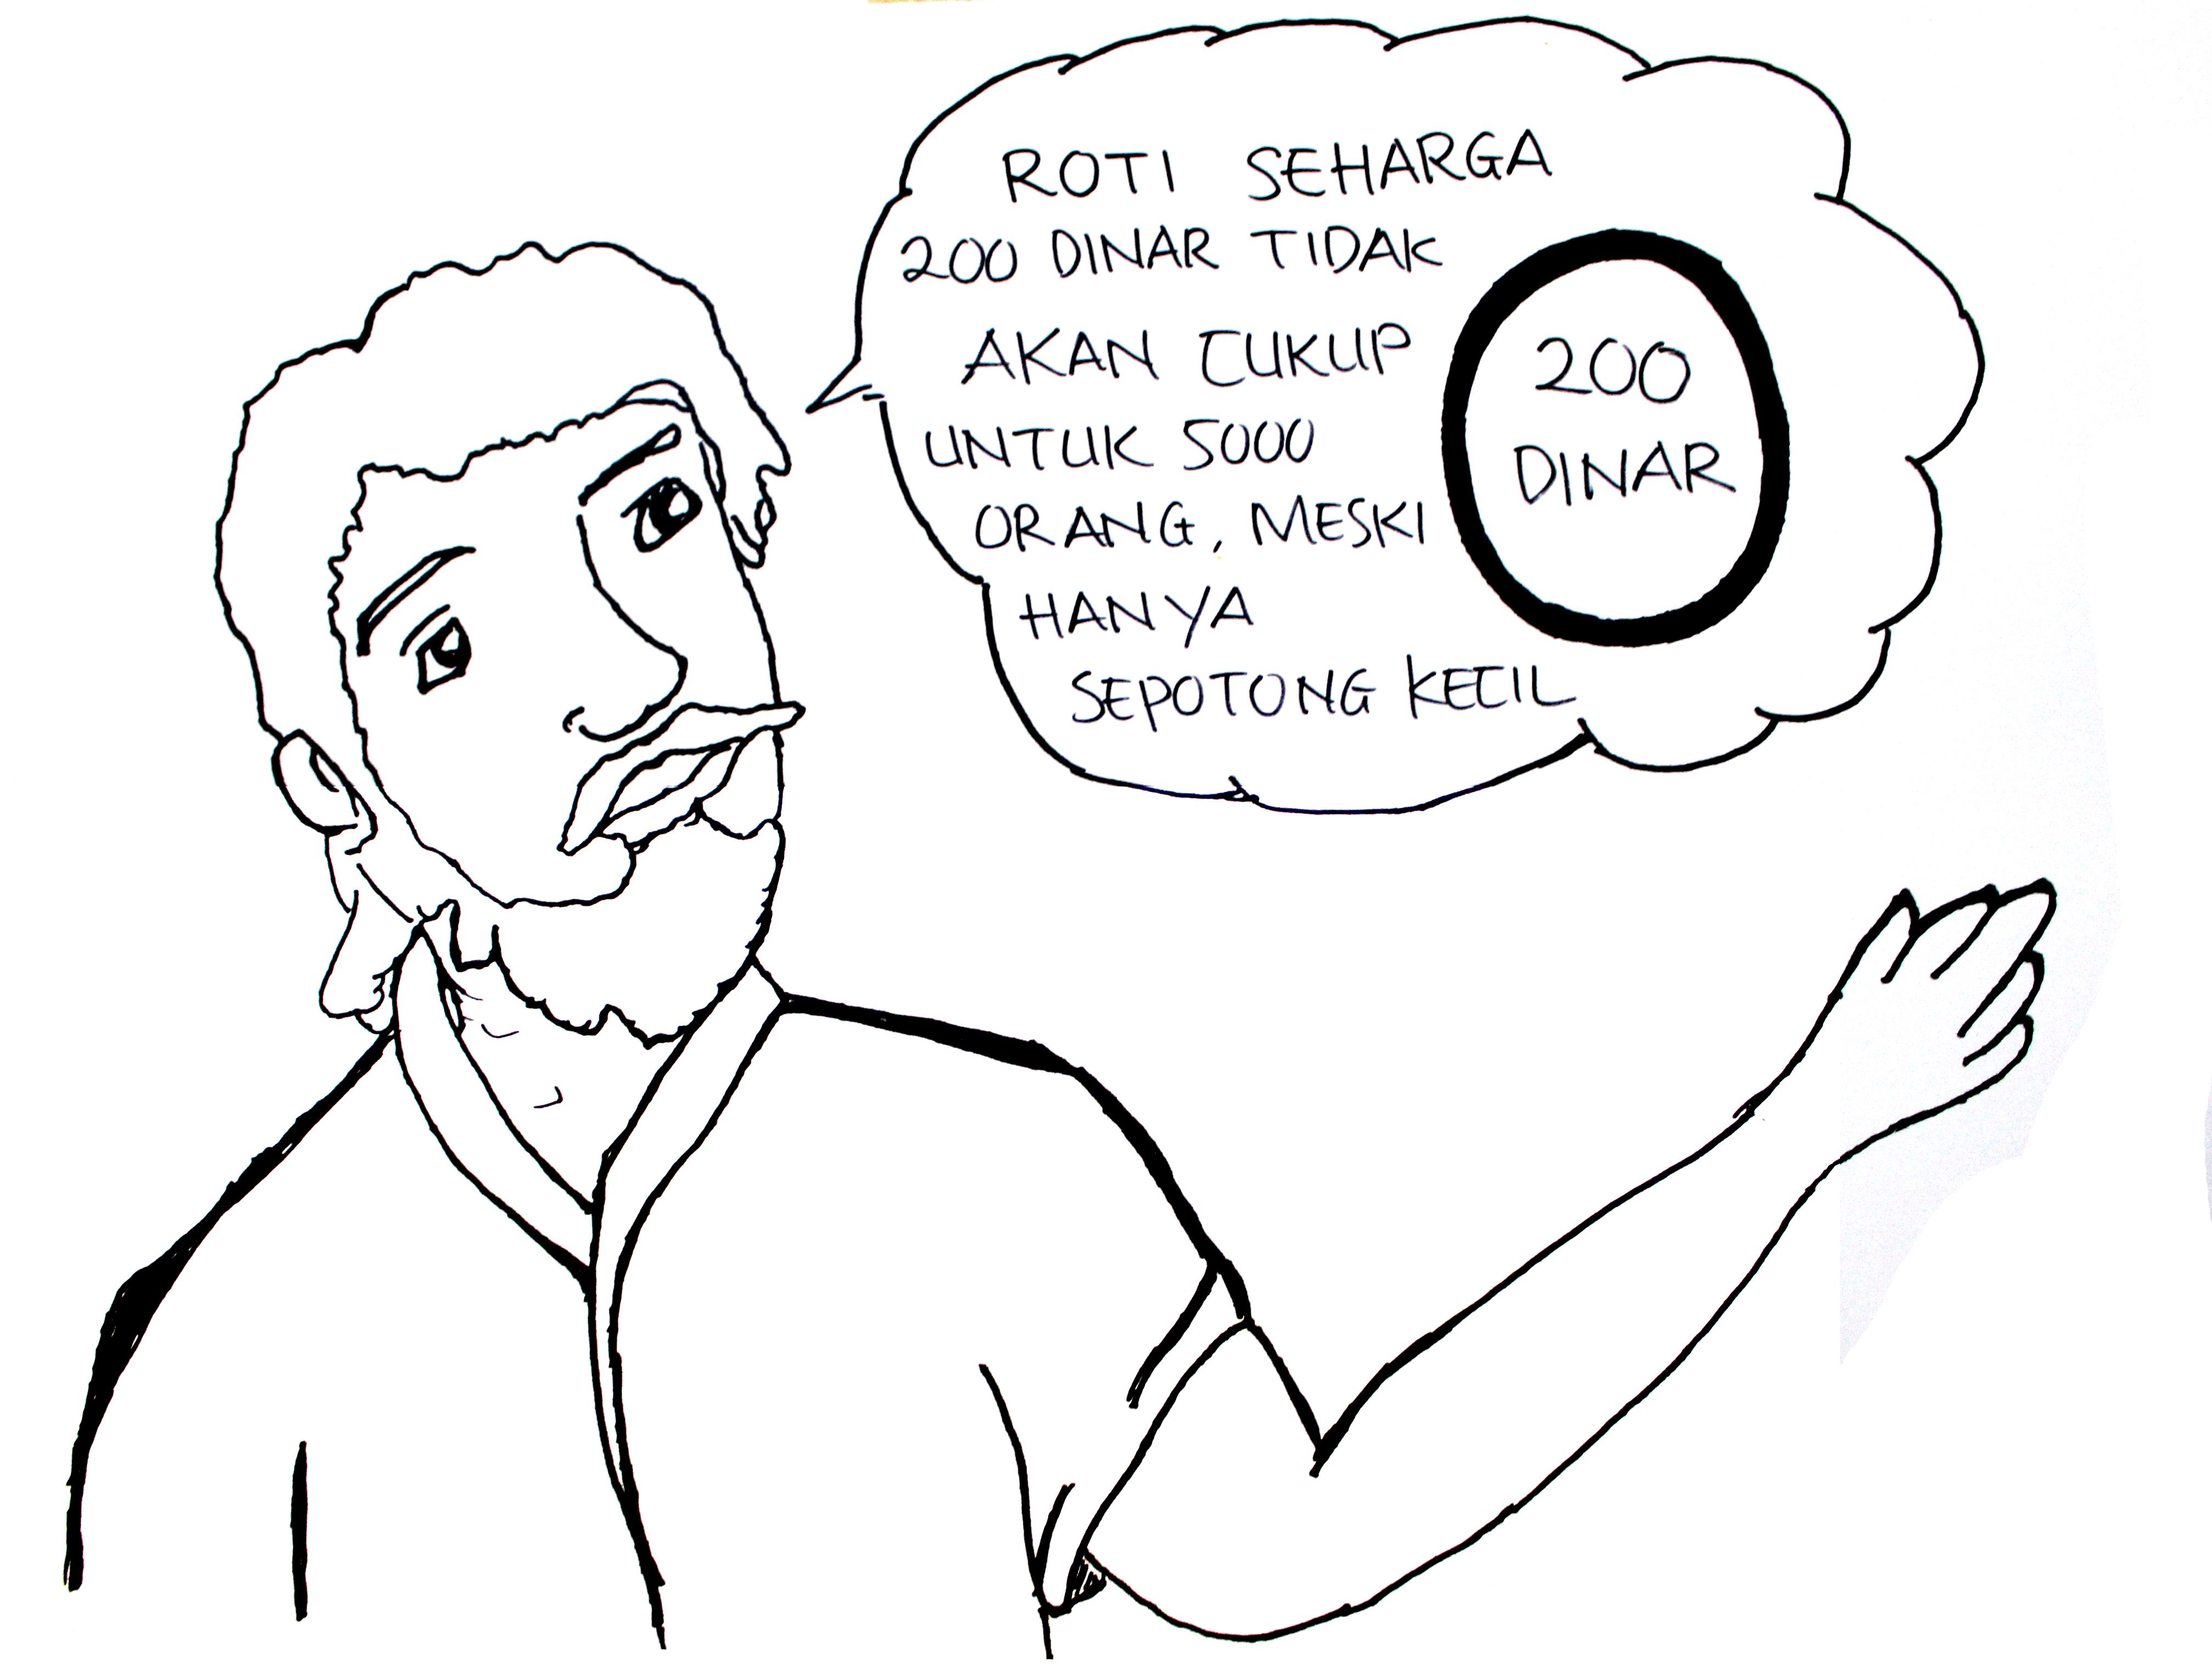 ROTI SEHARGA
200 DINAR TIDAK
AKAN CUKUP
UNTUK 5000
ORANG, MESKI
HANYA
SEPOTONG KECIL
200
DINAR